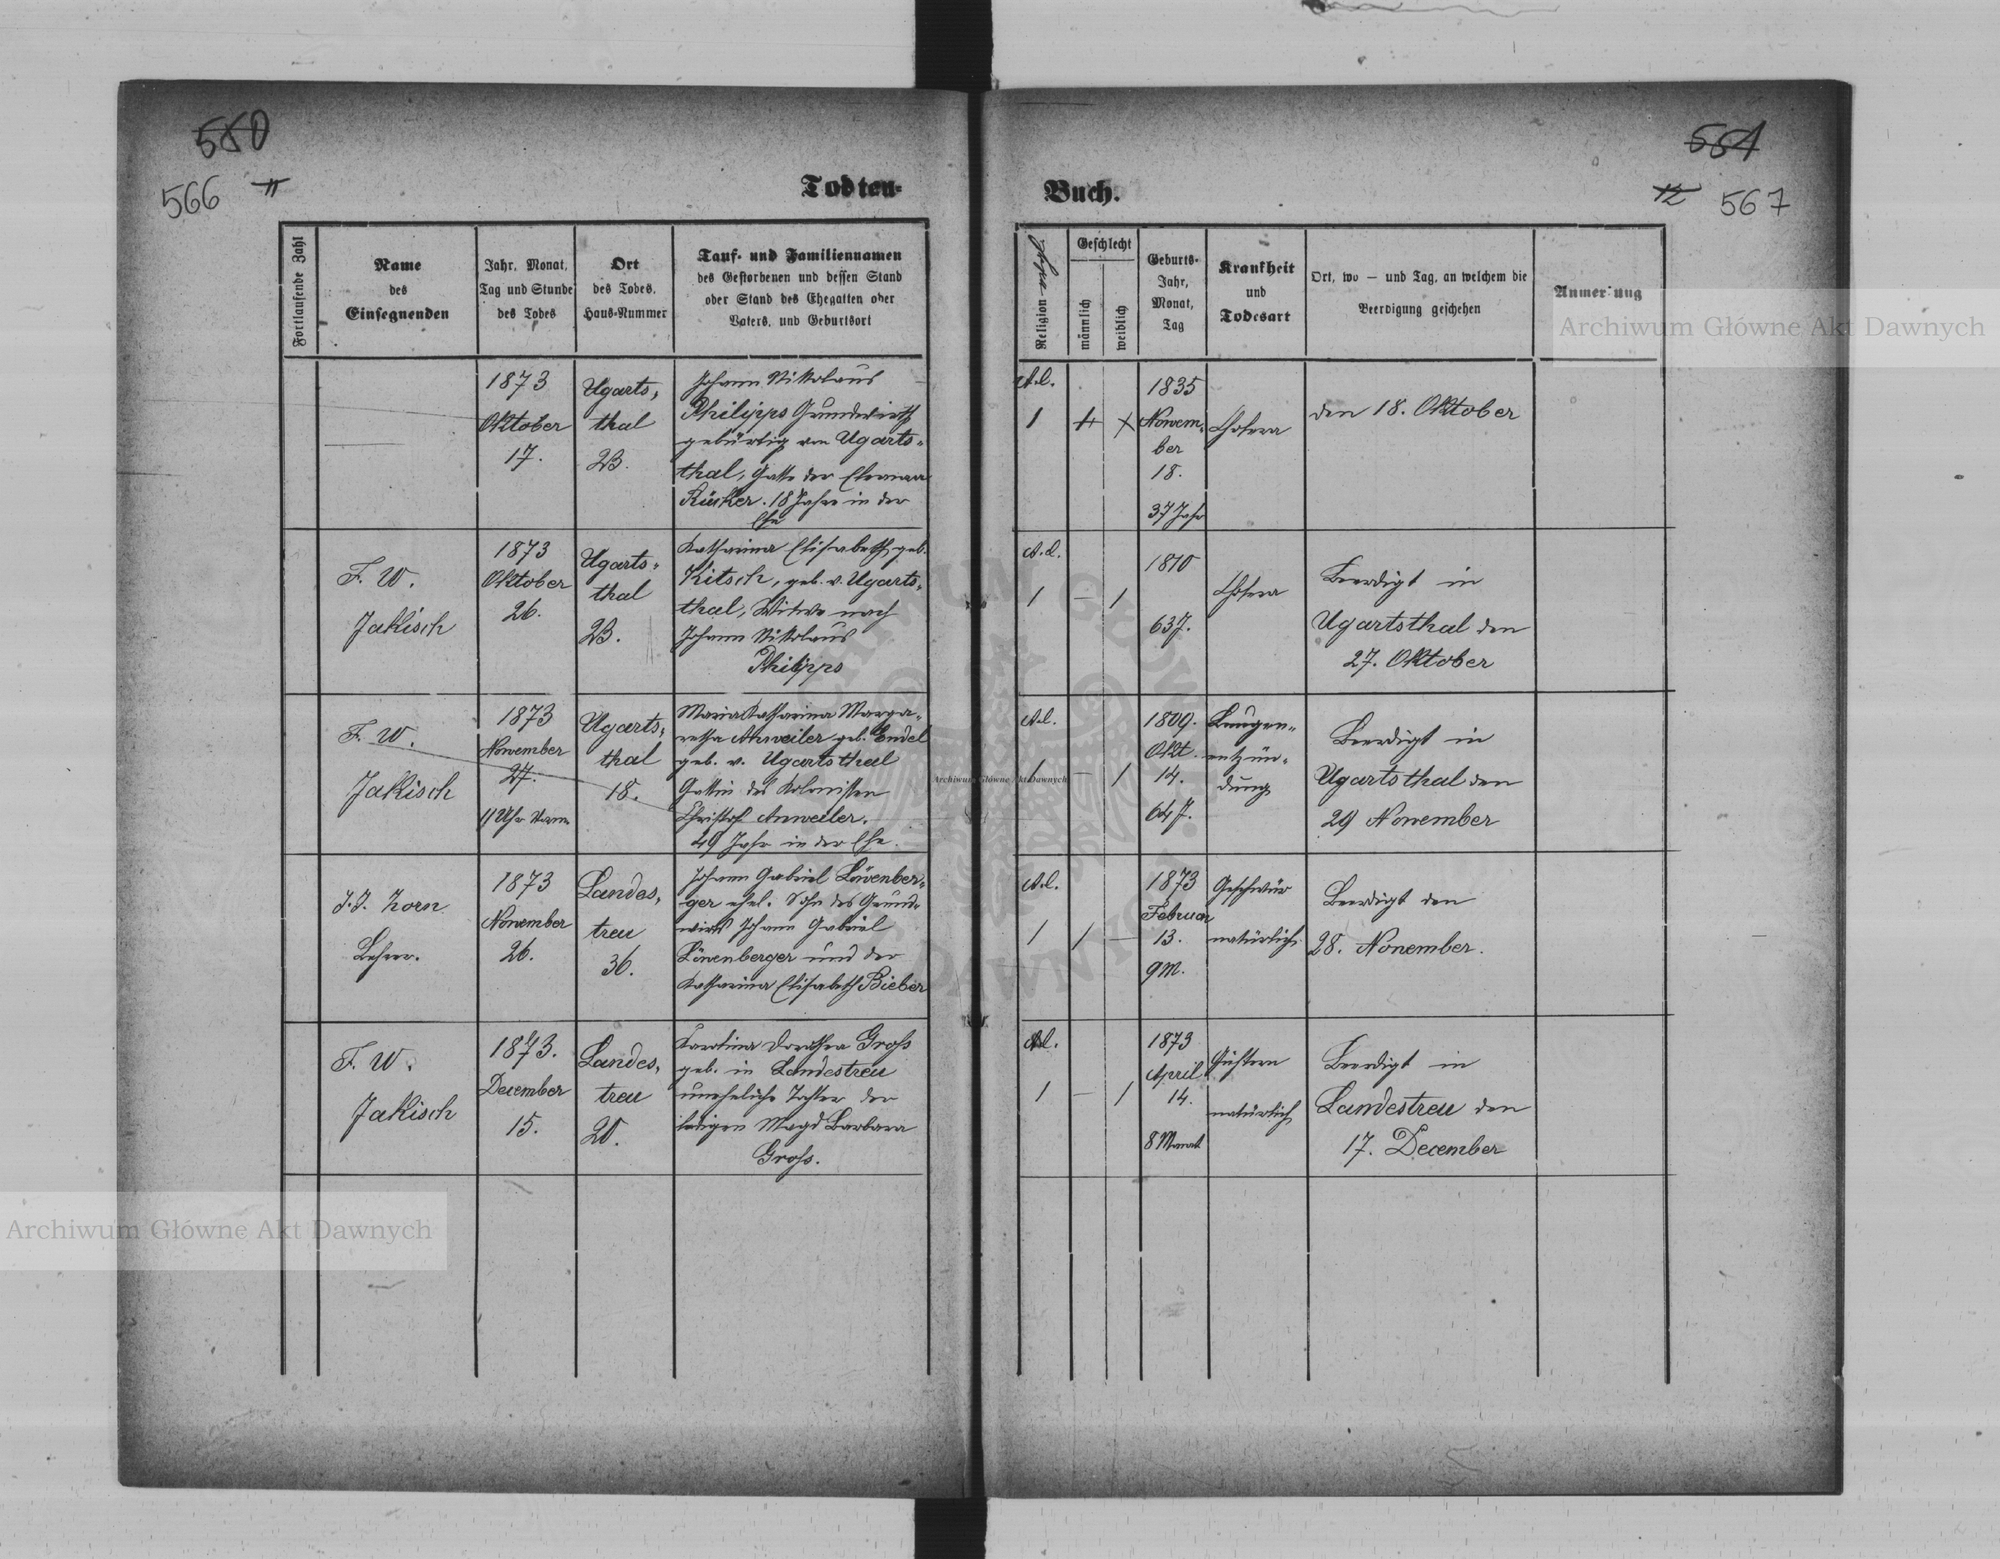 560
566
11
Todten-
Fortlaufende Zahl
Name
des
Einsegnenden
Jahr, Monat,
Tag und Stunde
des Todes
Ort
des Todes,
Haus-Nummer
Tauf- und Familiennamen
des Gestorbenen und dessen Stand
oder Stand des Ehegatten oder
Vaters, und Geburtsort
1873
Oktober
17.
Ugarts,
thal
23.
Johann Nikolaus
Philipps Grundwirth
gebürtig von Ugarts-
thal, Gatte der
18 Jahre in der
Ehe
F. W.
Jakisch
1873
Oktober
26.
Ugarts-
thal
23.
Katharina Elisabeth geb.
Kitsch, geb. v. Ugarts-
thal, Witwe nach
Johann Nikolaus
Philipps
F. W.
Jakisch
1873
November
27.
11 Uhr Vorm.
Ugarts,
thal
18.
Maria Katharina Marga-
retha Anweiler geb. Endel
geb. v. Ugartsthal
Gattin des Kolonisten
Christof Anweiler.
49 Jahr in der Ehe.
J. J. Zorn
Lehrer.
1873
November
26.
Landes,
treu
36.
Johann Gabriel Löwenber-
ger ehel. Sohn des Grund-
wirts Johann Gabriel
Löwenberger und der
Katharina Elisabeth Bieber
F. W.
Jakisch
1873.
December
15.
Landes,
treu
20.
Karolina Dorothea Groß
geb. in Landestreu
uneheliche Tochter der
ledigen Magd Barbara
Groß.
Buch.
561
12
567
Religion
Geschlecht
männlich
weiblich
Geburts-
Jahr,
Monat,
Tag
Krankheit
und
Todesart
Ort, wo – und Tag, an welchem die
Beerdigung geschehen
Anmerkung
A.C.
1
1835
Novem-
ber
18.
37 Jahr
Cholera
den 18. Oktober
A.C.
1 – 1
1810
63 J.
Cholera
Beerdigt in
Ugartsthal den
27. Oktober
A.C.
1 – 1
1809.
Okt.
14.
64 J.
Lungen-
entzün-
dung
Beerdigt in
Ugartsthal den
29 November
A.C.
1 1 –
1873
Februar
13.
9 M.
Geschwür
natürlich
Beerdigt den
28. November.
A.C.
1 – 1
1873
April
14.
8 Monat
natürlich
Beerdigt in
Landestreu den
17. December
Archiwum Główne Akt Dawnych
Archiwum Główne Akt Dawnych
Archiwum Główne Akt Dawnych